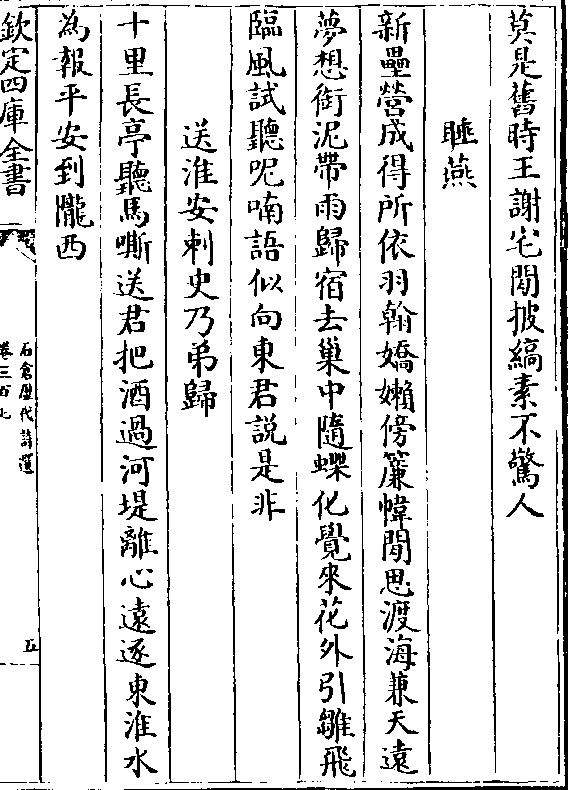 莫是舊時王謝宅閒披縞素不驚人
睡燕
新壘營成得所依羽翰嬌嬾傍簾幃閒思渡海兼天遠
夢想銜泥帶雨歸宿去巢中隨蝶化覺來花外引雛飛
臨風試聽呢喃語似向東君說是非
送淮安刺史乃弟歸
十里長亭聽馬嘶送君把酒過河堤離心遠逐東淮水
為報平安到隴西
欽定四庫全書
石倉歷代詩選
卷三百七
五